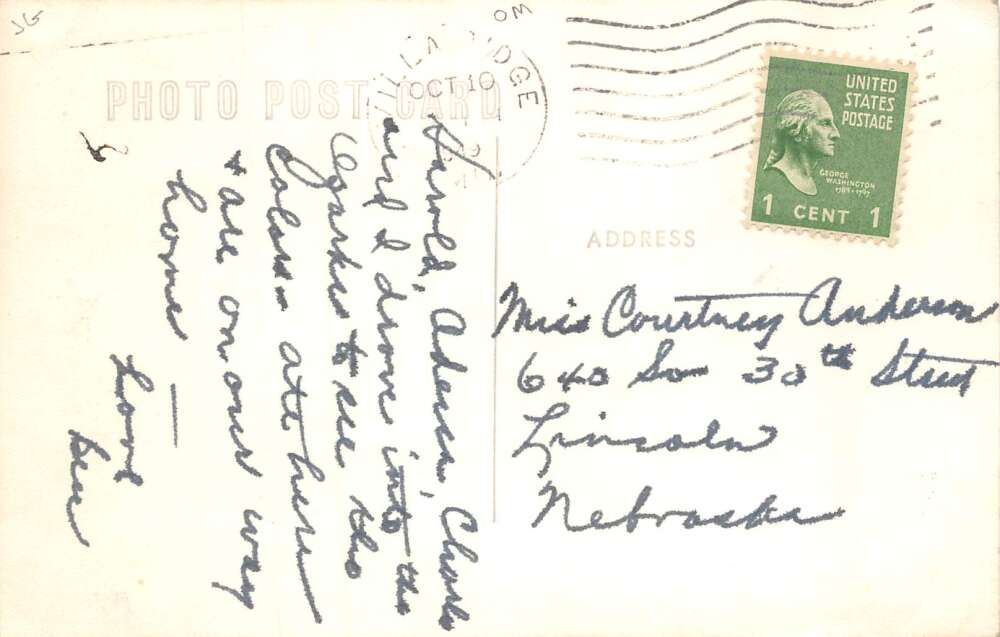 JG
PHOTO POST CARD
OCT 10
UNITED
STATES
POSTAGE
GEORGE
WASHINGTON
1789-1797
1 CENT 1
ADDRESS
Harold, Adena, Charles
and I drove into the
Ozarks to see the
Colors - ate here
+ are on our way
home —
Love
Bea
Miss Courtney Anderson
640 So 30th Street
Lincoln
Nebraska